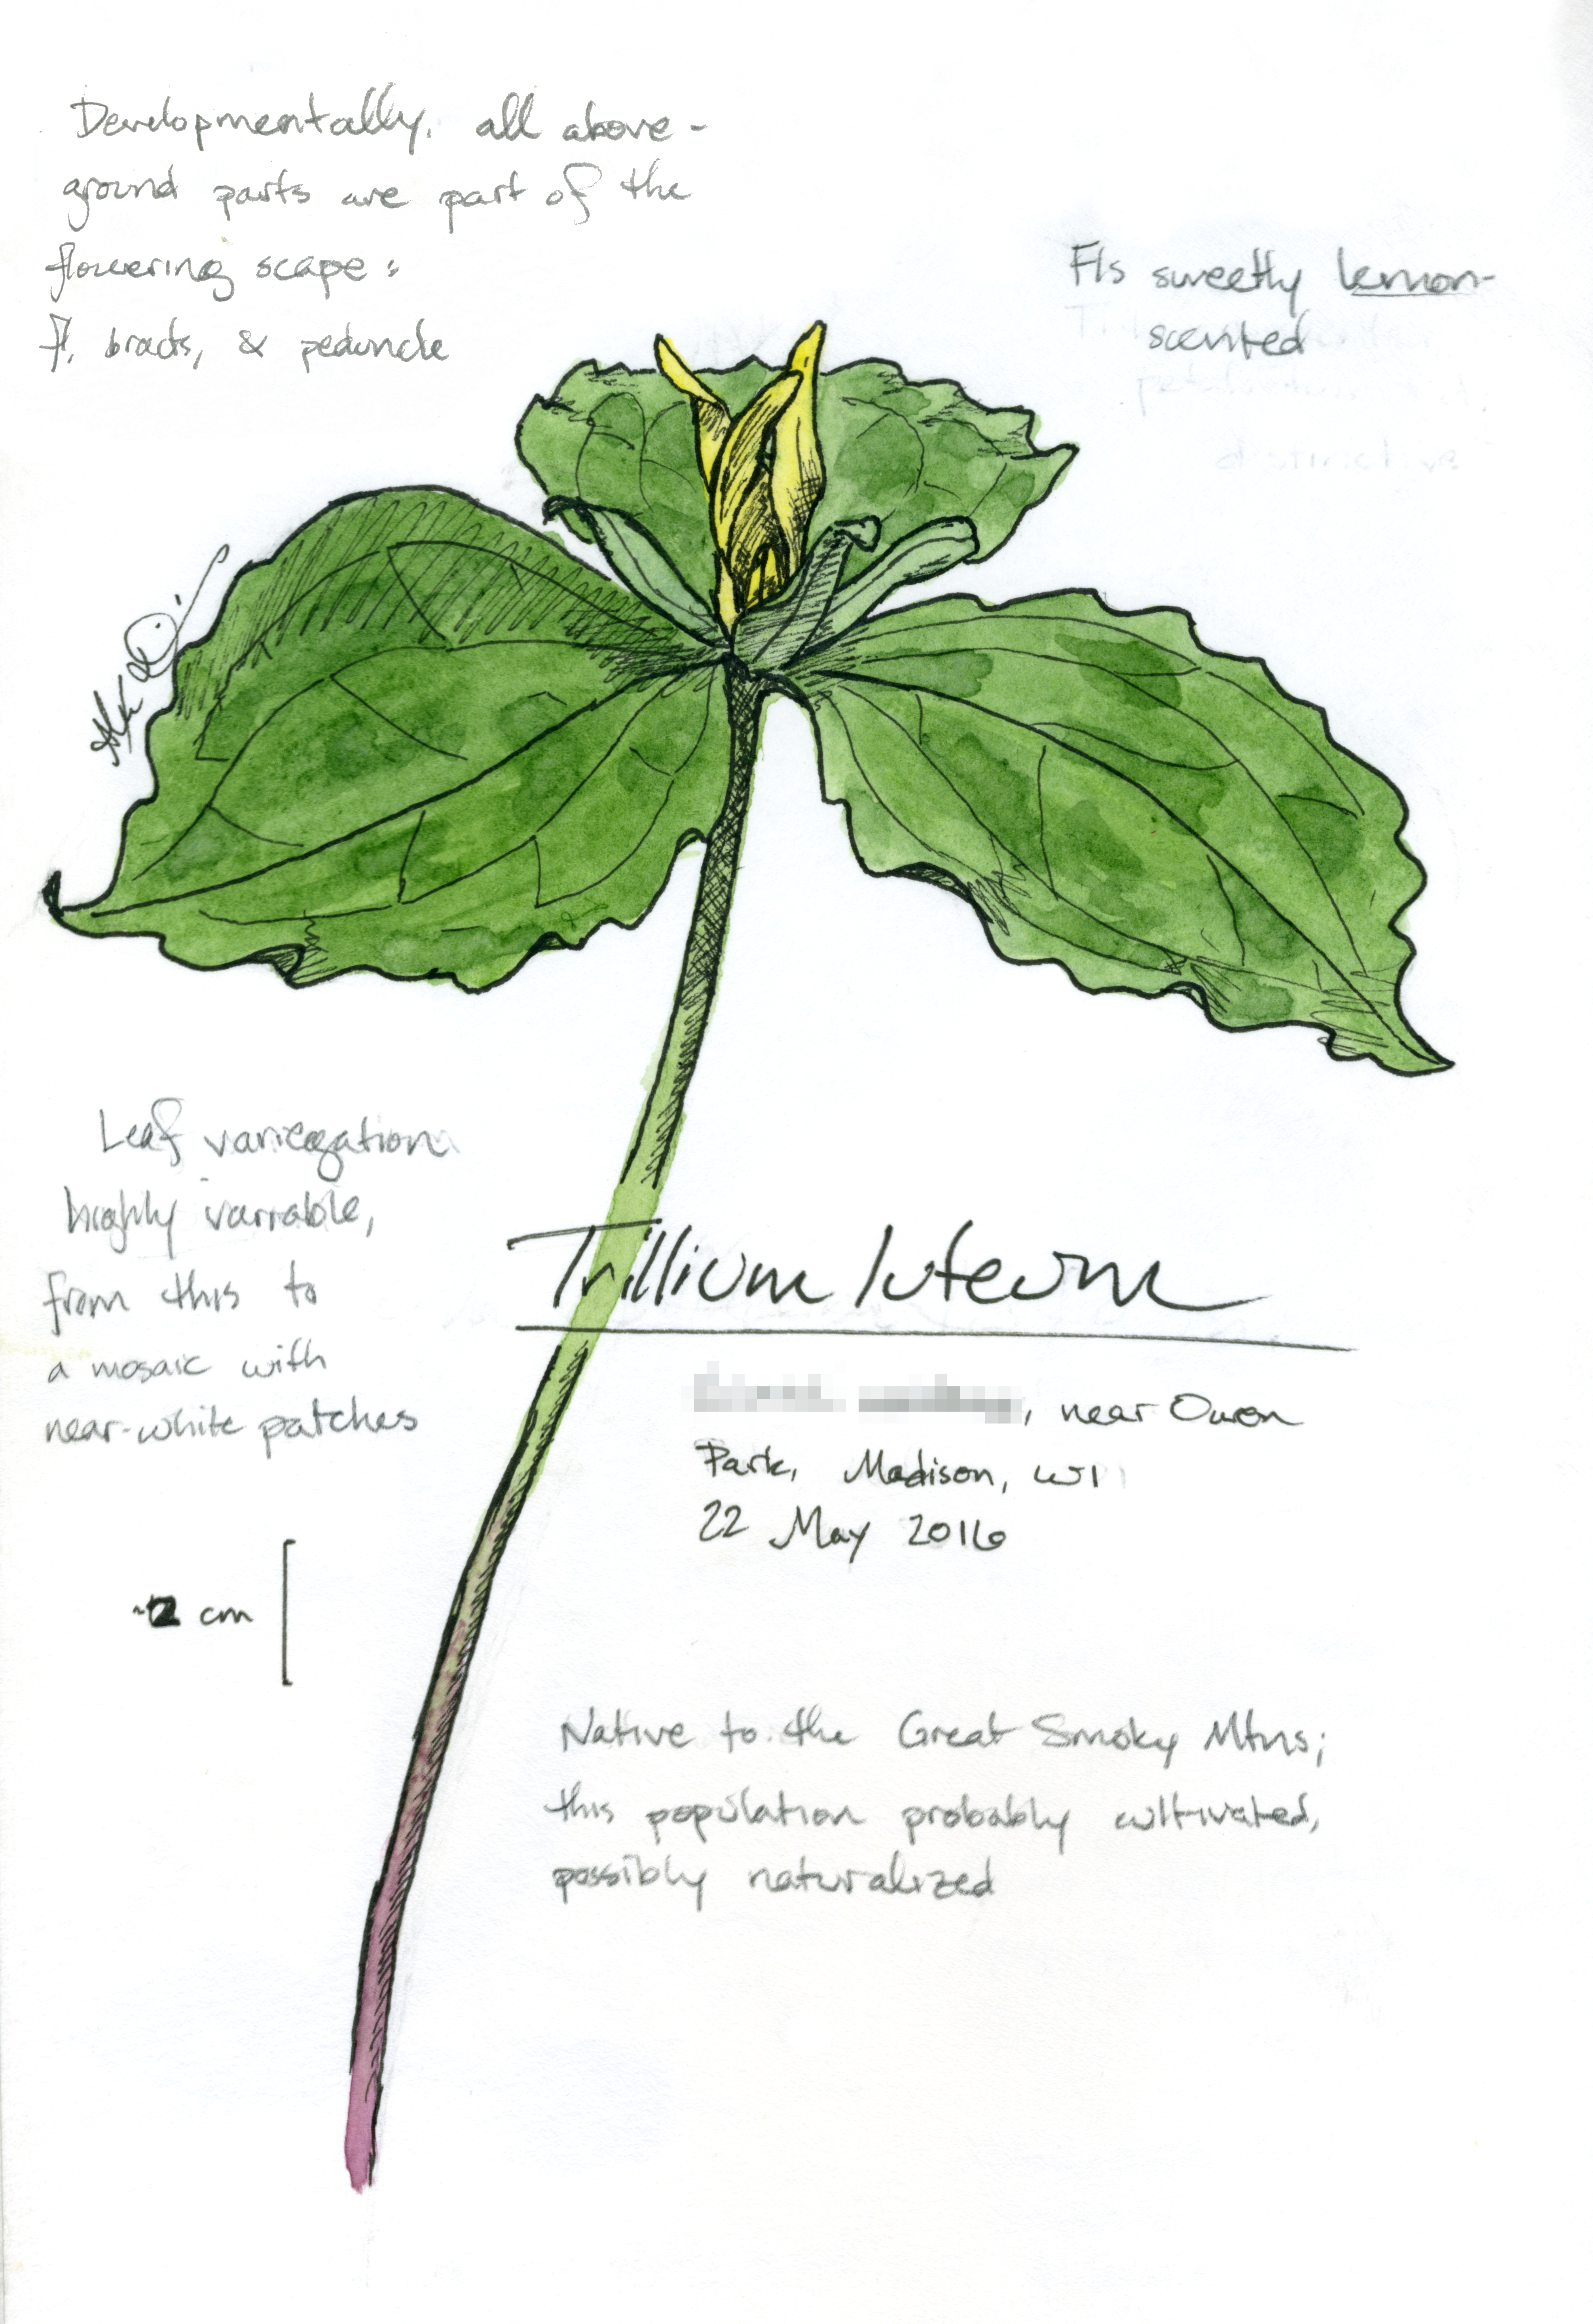 Developmentally, all above-
ground parts are part of the
flowering scape:
fl, bracts, & peduncle
Fls sweetly lemon-
scented
Leaf variegation
highly variable,
from this to
a mosaic with
near-white patches
Trillium luteum
, near Owen
Park, Madison, WI
22 May 2016
~2 cm
Native to the Great Smoky Mtns;
this population probably cultivated,
possibly naturalized